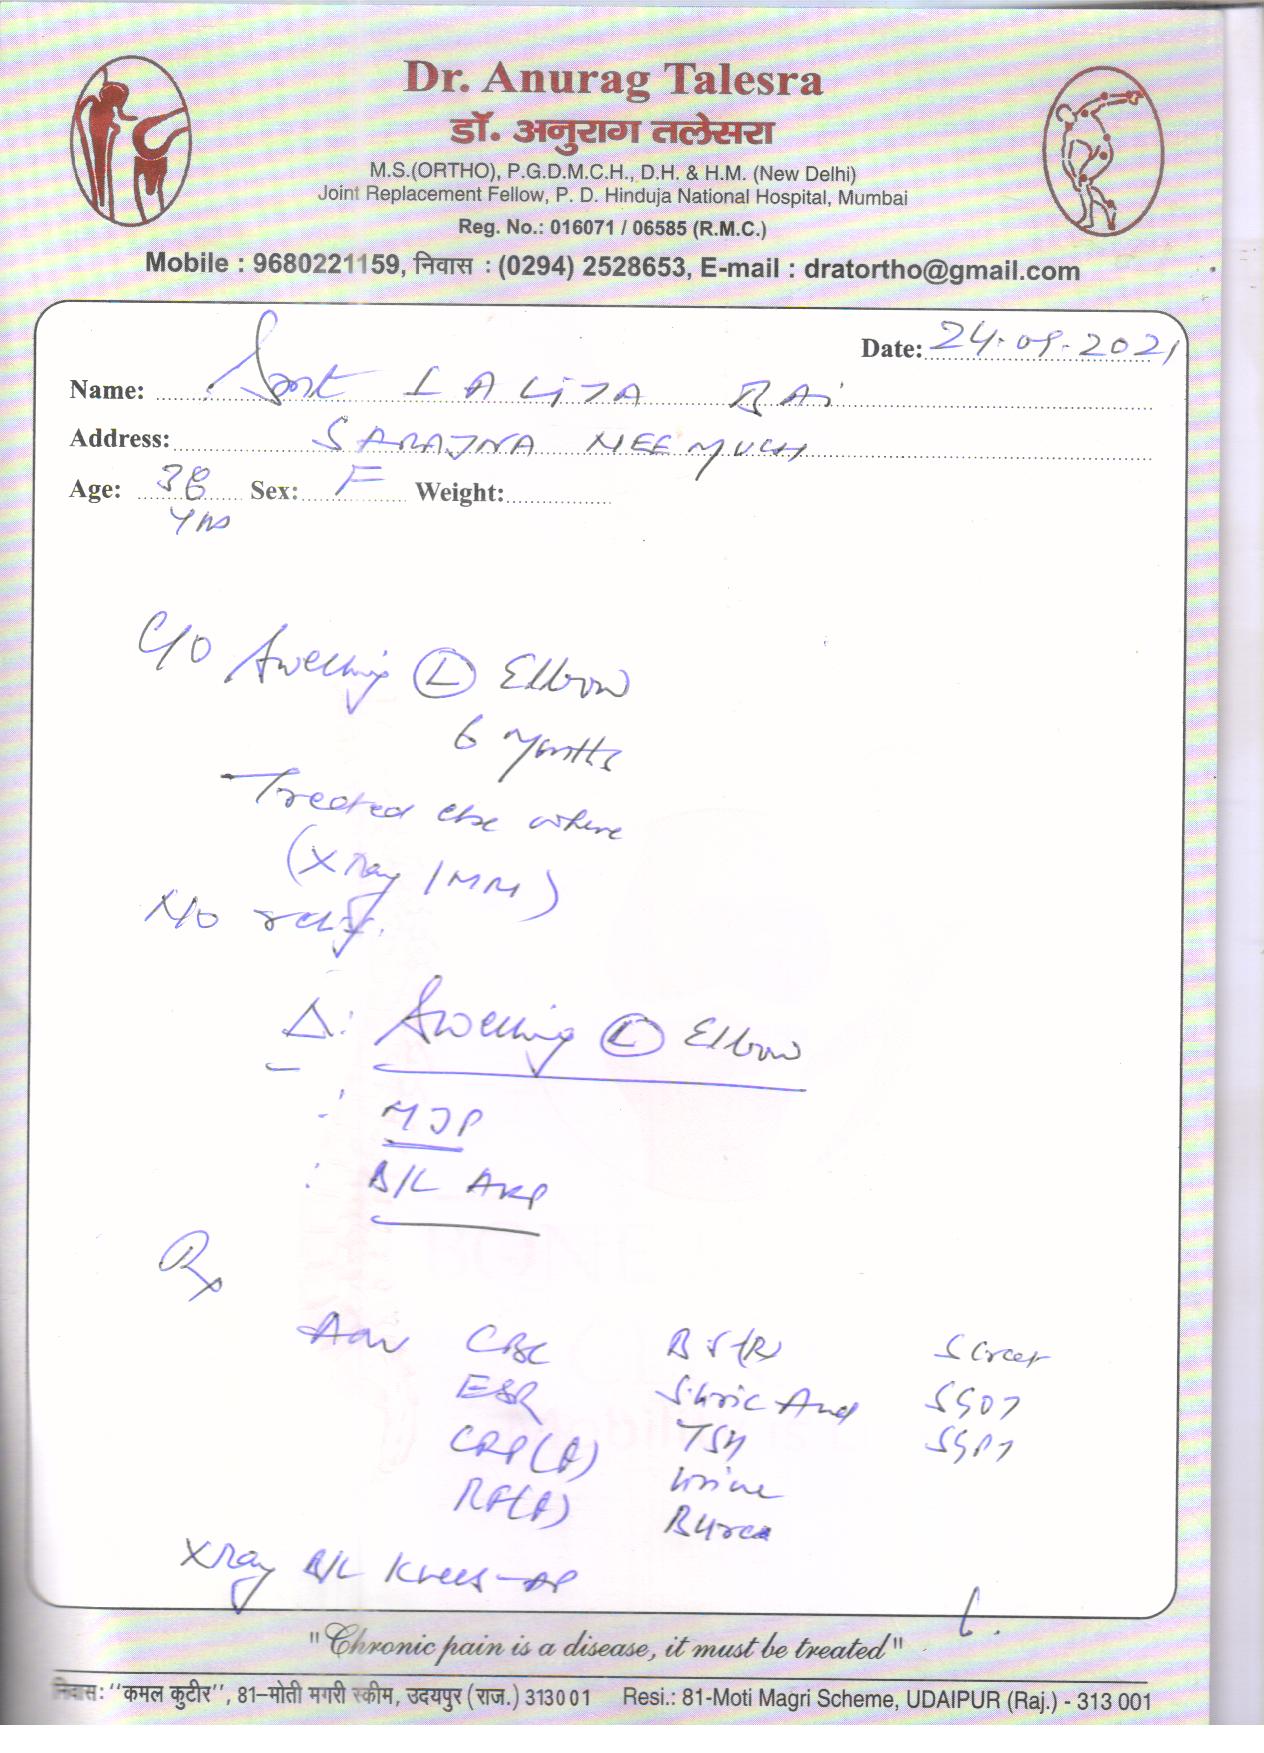 Dr. Anurag Talesra
डॉ. अनुराग तलेसरा
M.S.(ORTHO), P.G.D.M.C.H., D.H. & H.M. (New Delhi)
Joint Replacement Fellow, P. D. Hinduja National Hospital, Mumbai
Reg. No.: 016071 / 06585 (R.M.C.)
Mobile : 9680221159, निवास : (0294) 2528653, E-mail : dratortho@gmail.com
Date: 24.09.2021
Name: Smt LALITA BAi
Address: SARAJNA NEEMUCH
Age: 38 Sex: F Weight:
yrs
C/O Swelling Ⓛ Elbow
6 Months
Treated else where
(Xray / MRI)
No relief.
Δ: Swelling Ⓛ Elbow
: MJP
: B/L AKP
Rx
Adv CBC BS(R) S Creat
ESR S.Uric Acid SGOT
CRP(A) TSH SGPT
RF(A) Urine
B Urea
Xray B/L Knees-AP
"Chronic pain is a disease, it must be treated"
निवास: "कमल कुटीर", 81-मोती मगरी स्कीम, उदयपुर (राज.) 313001 Resi.: 81-Moti Magri Scheme, UDAIPUR (Raj.) - 313 001